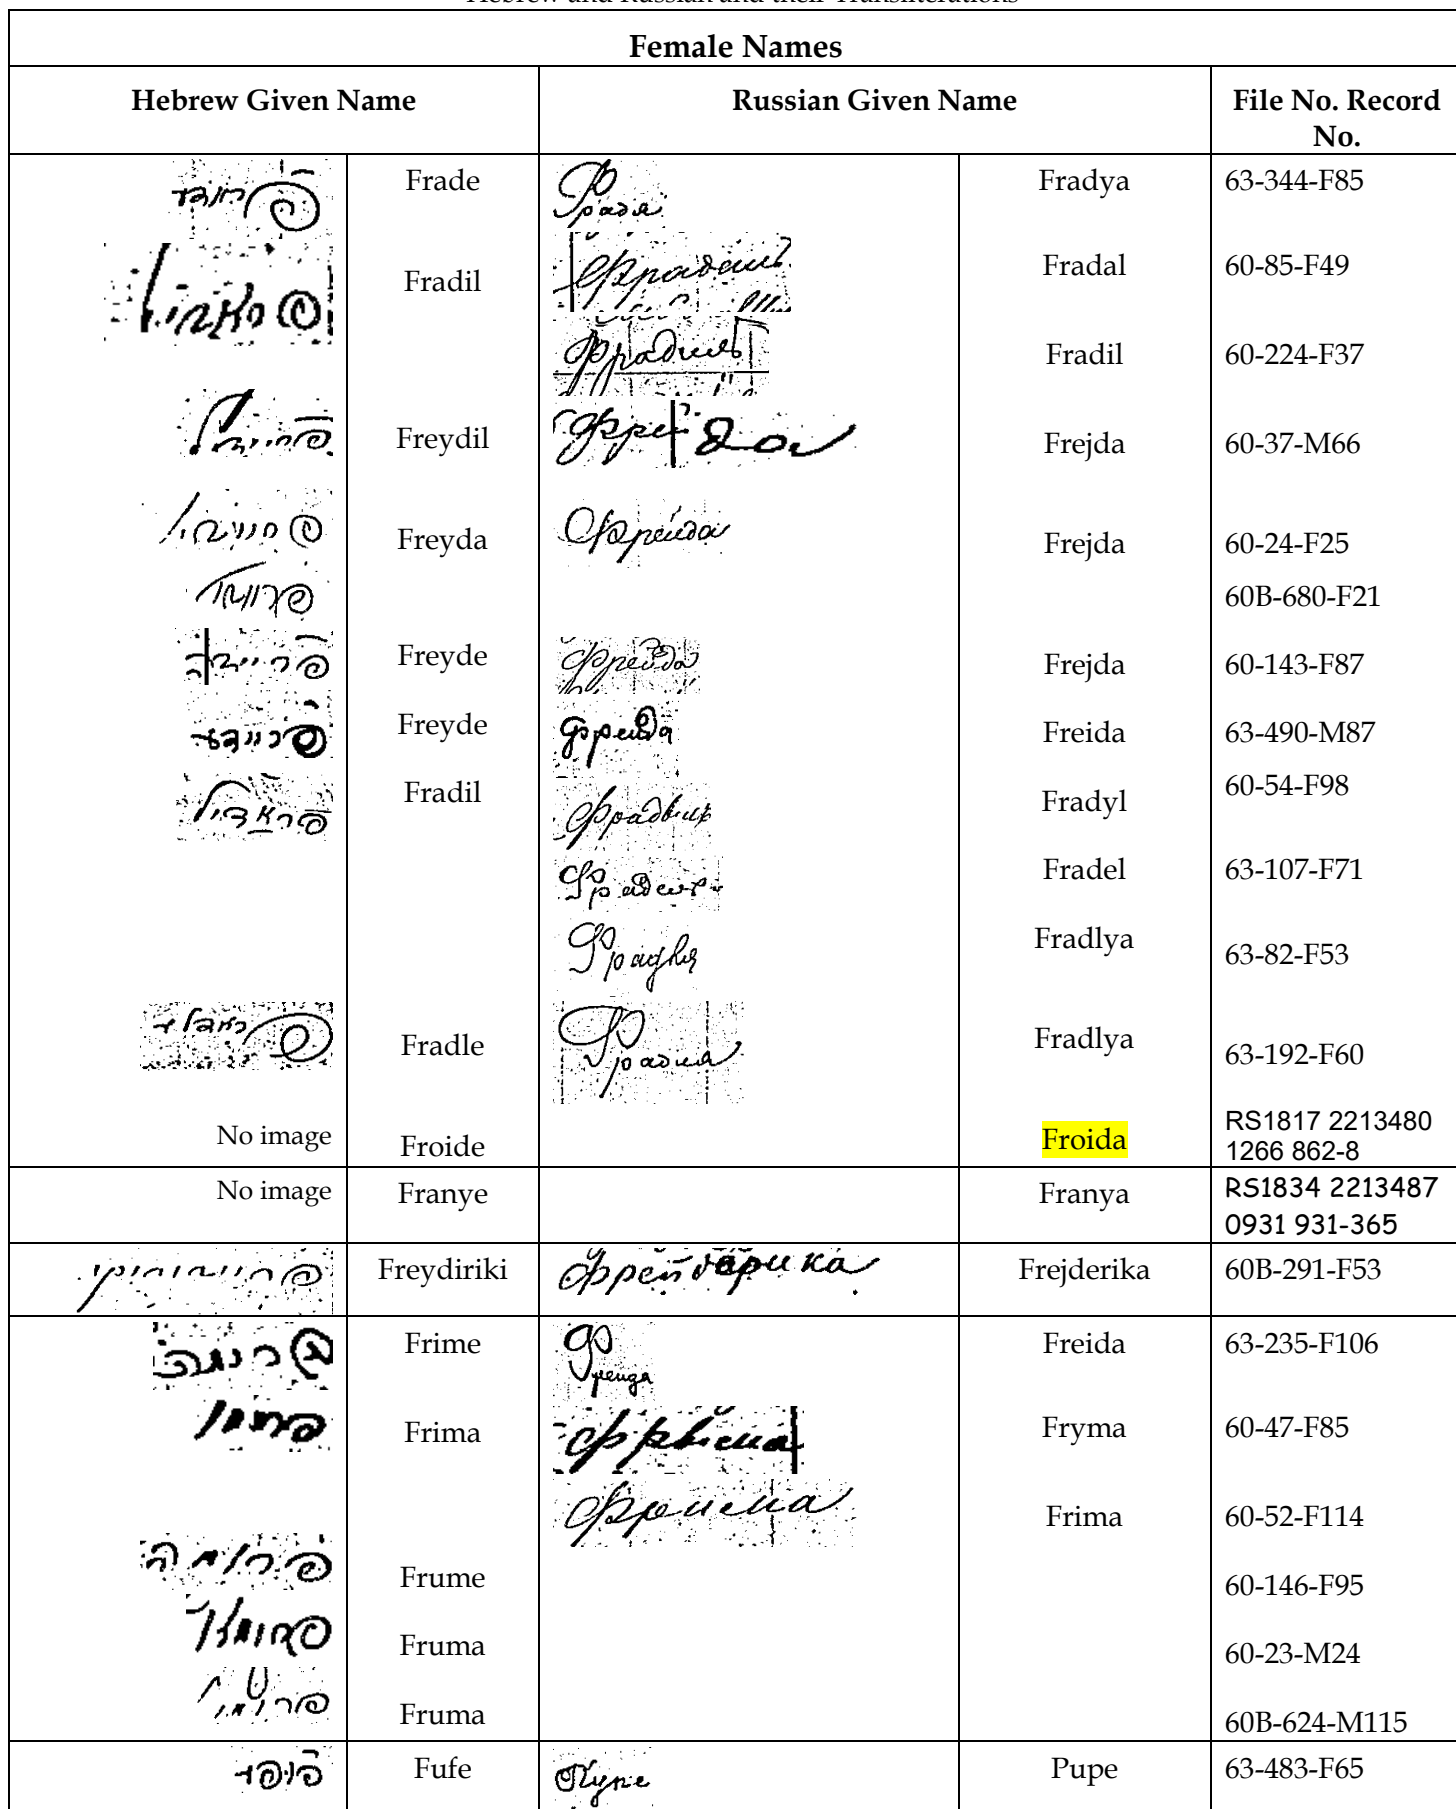 Hebrew and Russian and their Transliterations
Female Names
Hebrew Given Name Russian Given Name File No. Record No.
Frade Фрадя Fradya 63-344-F85
Fradil Fradal 60-85-F49
Фрадиль Fradil 60-224-F37
Freydil Фрейда Frejda 60-37-M66
Freyda Фрейда Frejda 60-24-F25
60B-680-F21
Freyde Фрейда Frejda 60-143-F87
Freyde Фреида Freida 63-490-M87
Fradil Fradyl 60-54-F98
Фрадель Fradel 63-107-F71
Fradlya 63-82-F53
Fradle Фрадля Fradlya 63-192-F60
No image Froide Froida RS1817 2213480
1266 862-8
No image Franye Franya RS1834 2213487
0931 931-365
Freydiriki Frejderika 60B-291-F53
פרימה Frime Фреида Freida 63-235-F106
Frima Фрыма Fryma 60-47-F85
Фрима Frima 60-52-F114
פרומה Frume 60-146-F95
Fruma 60-23-M24
Fruma 60B-624-M115
Fufe Пупе Pupe 63-483-F65